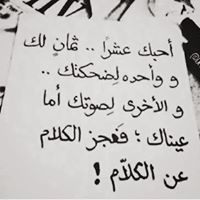 أحبك عشرًا .. ثمانٍ لك
و واحده لِضحكتك ..
و الأخرى لِصوتك أما
عيناك ؛ فَعجز الكلام
عن الكلآم !